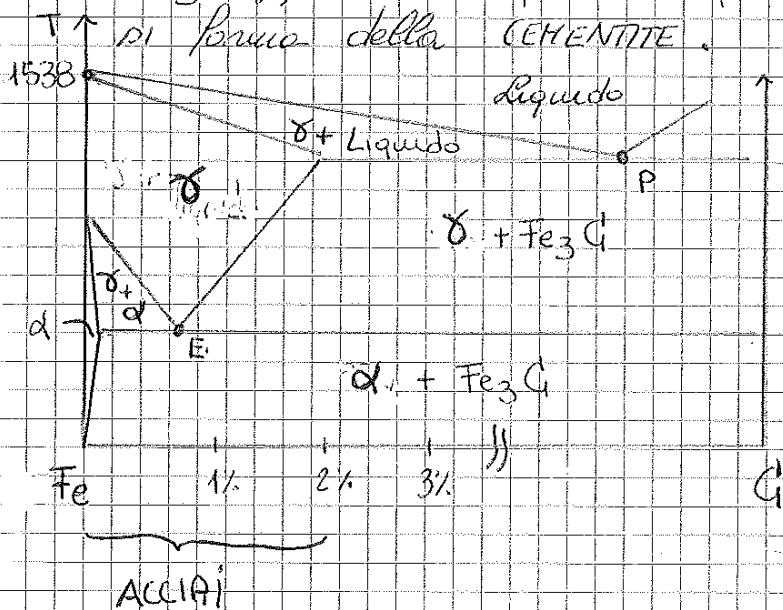 T DI forma della CEMENTITE.
1538
Liquido
γ + Liquido
γ
P
γ + Fe3C
γ+
α
α
E
α + Fe3C
Fe 1% 2% 3% C
ACCIAI